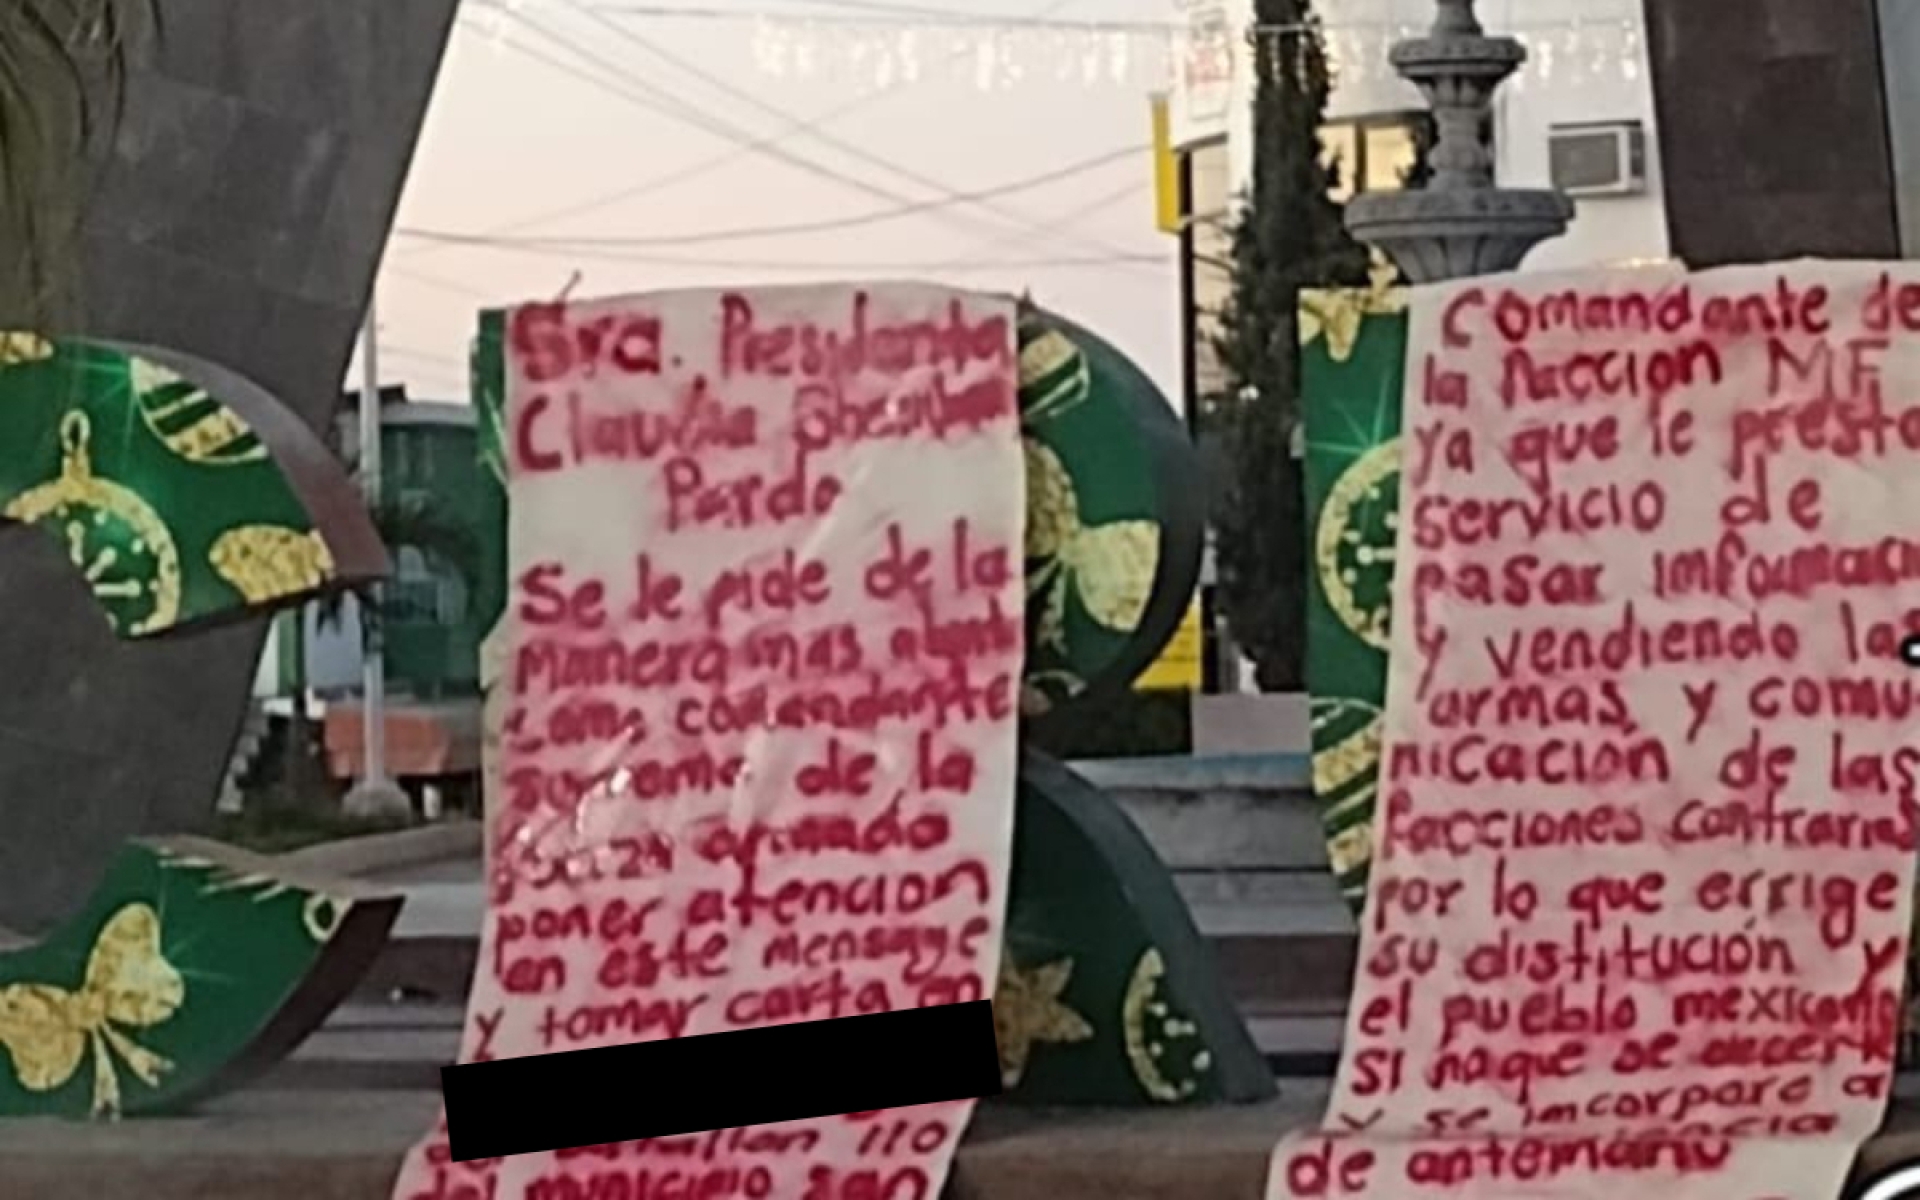 Sra. Presidenta
Claudia Sheinbaum
Pardo
Se le pide de la
manera mas atenta
como comandante
suprema de la
fuerza armada
poner atencion
en este mensage
y tomar carta en
110
del municipio san
Comandante de
la faccion MF
ya que le presta
servicio de
pasar informaci
y vendiendo las
armas y comu-
nicación de las
facciones contrarias
por lo que errige
su distitución y
el pueblo mexicano
si haque se
y se incorpora a
de antemano